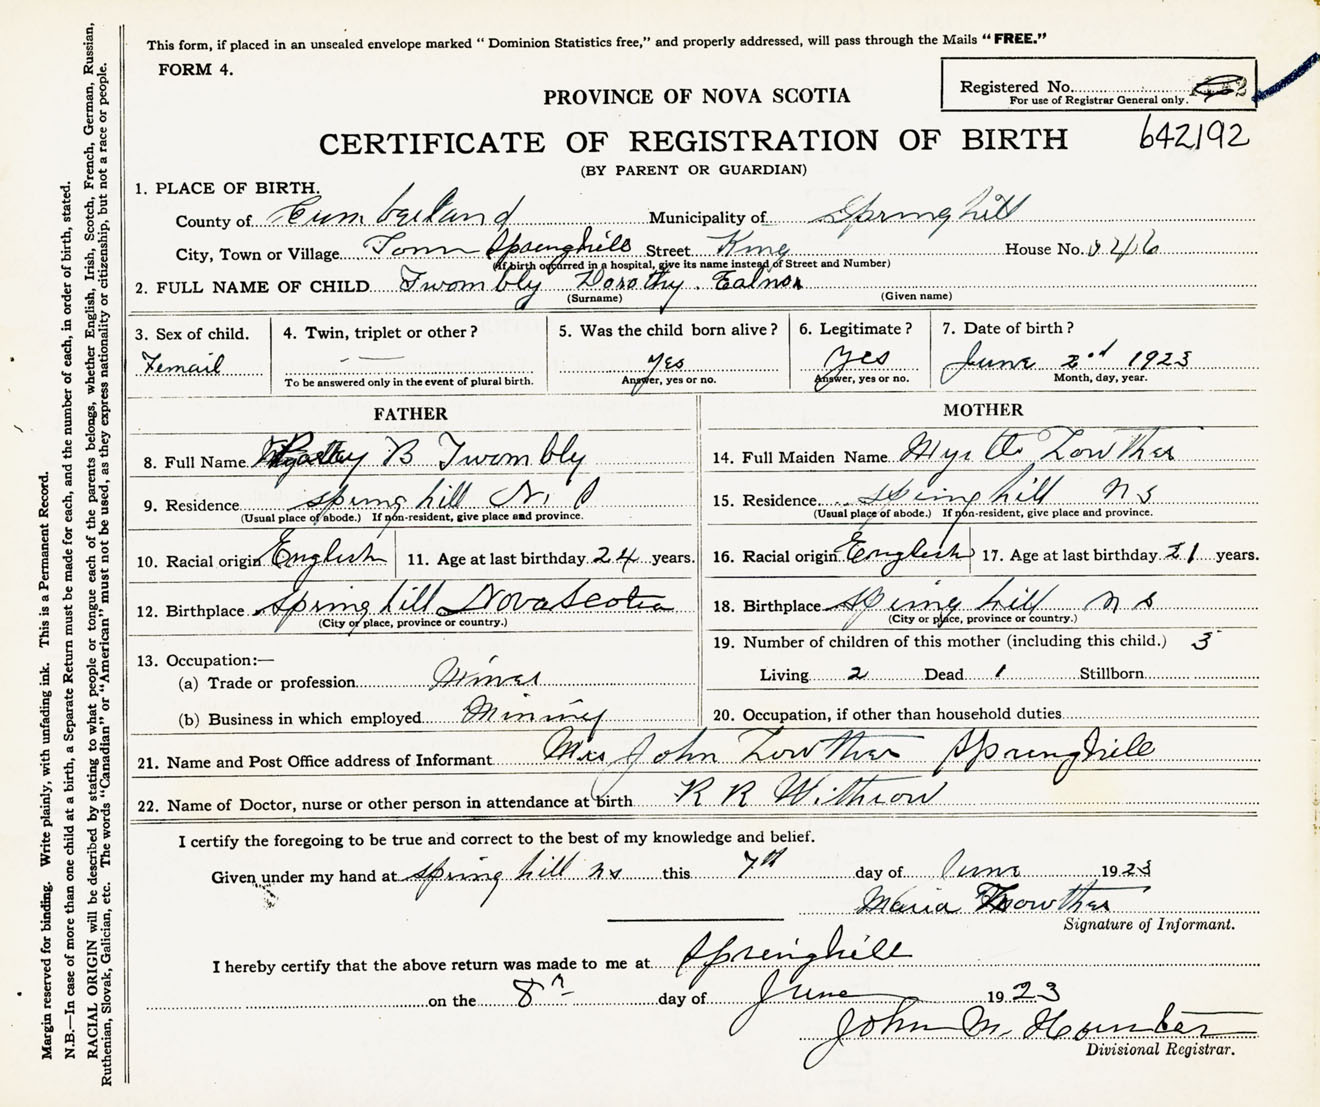 This form, if placed in an unsealed envelope marked “ Dominion Statistics free,” and properly addressed, will pass through the Mails “FREE.”
FORM 4.
Registered No.
For use of Registrar General only.
PROVINCE OF NOVA SCOTIA
CERTIFICATE OF REGISTRATION OF BIRTH
642192
(BY PARENT OR GUARDIAN)
1. PLACE OF BIRTH.
County of Cumberland Municipality of Springhill
City, Town or Village Town Springhill Street King House No. 246
(If birth occurred in a hospital, give its name instead of Street and Number)
2. FULL NAME OF CHILD Twombly Dorothy Ealnor
(Surname) (Given name)
3. Sex of child. 4. Twin, triplet or other? 5. Was the child born alive? 6. Legitimate? 7. Date of birth?
Femail — yes yes June 2nd 1923
To be answered only in the event of plural birth. Answer, yes or no. Answer, yes or no. Month, day, year.
FATHER
8. Full Name B Twombly
9. Residence Spring hill N.
(Usual place of abode.) If non-resident, give place and province.
10. Racial origin English 11. Age at last birthday 24 years.
12. Birthplace Spring hill Nova Scotia
(City or place, province or country.)
13. Occupation:—
(a) Trade or profession Miner
(b) Business in which employed Mining
MOTHER
14. Full Maiden Name Myrtle Lowther
15. Residence Spring hill n s
(Usual place of abode.) If non-resident, give place and province.
16. Racial origin English 17. Age at last birthday 21 years.
18. Birthplace Spring hill n s
(City or place, province or country.)
19. Number of children of this mother (including this child.) 3
Living 2 Dead 1 Stillborn
20. Occupation, if other than household duties
21. Name and Post Office address of Informant Mrs John Lowther Springhill
22. Name of Doctor, nurse or other person in attendance at birth R R Withrow
I certify the foregoing to be true and correct to the best of my knowledge and belief.
Given under my hand at spring hill ns this 7th day of June 1923
Maria Lowther
Signature of Informant.
I hereby certify that the above return was made to me at Springhill
on the 8th day of June 1923
John M. Hounber
Divisional Registrar.
Margin reserved for binding. Write plainly, with unfading ink. This is a Permanent Record.
N.B.—In case of more than one child at a birth, a Separate Return must be made for each, and the number of each, in order of birth, stated.
RACIAL ORIGIN will be described by stating to what people or tongue each of the parents belongs, whether English, Irish, Scotch, French, German, Russian,
Ruthenian, Slovak, Galician, etc. The words “Canadian” or “American” must not be used, as they express nationality or citizenship, but not a race or people.